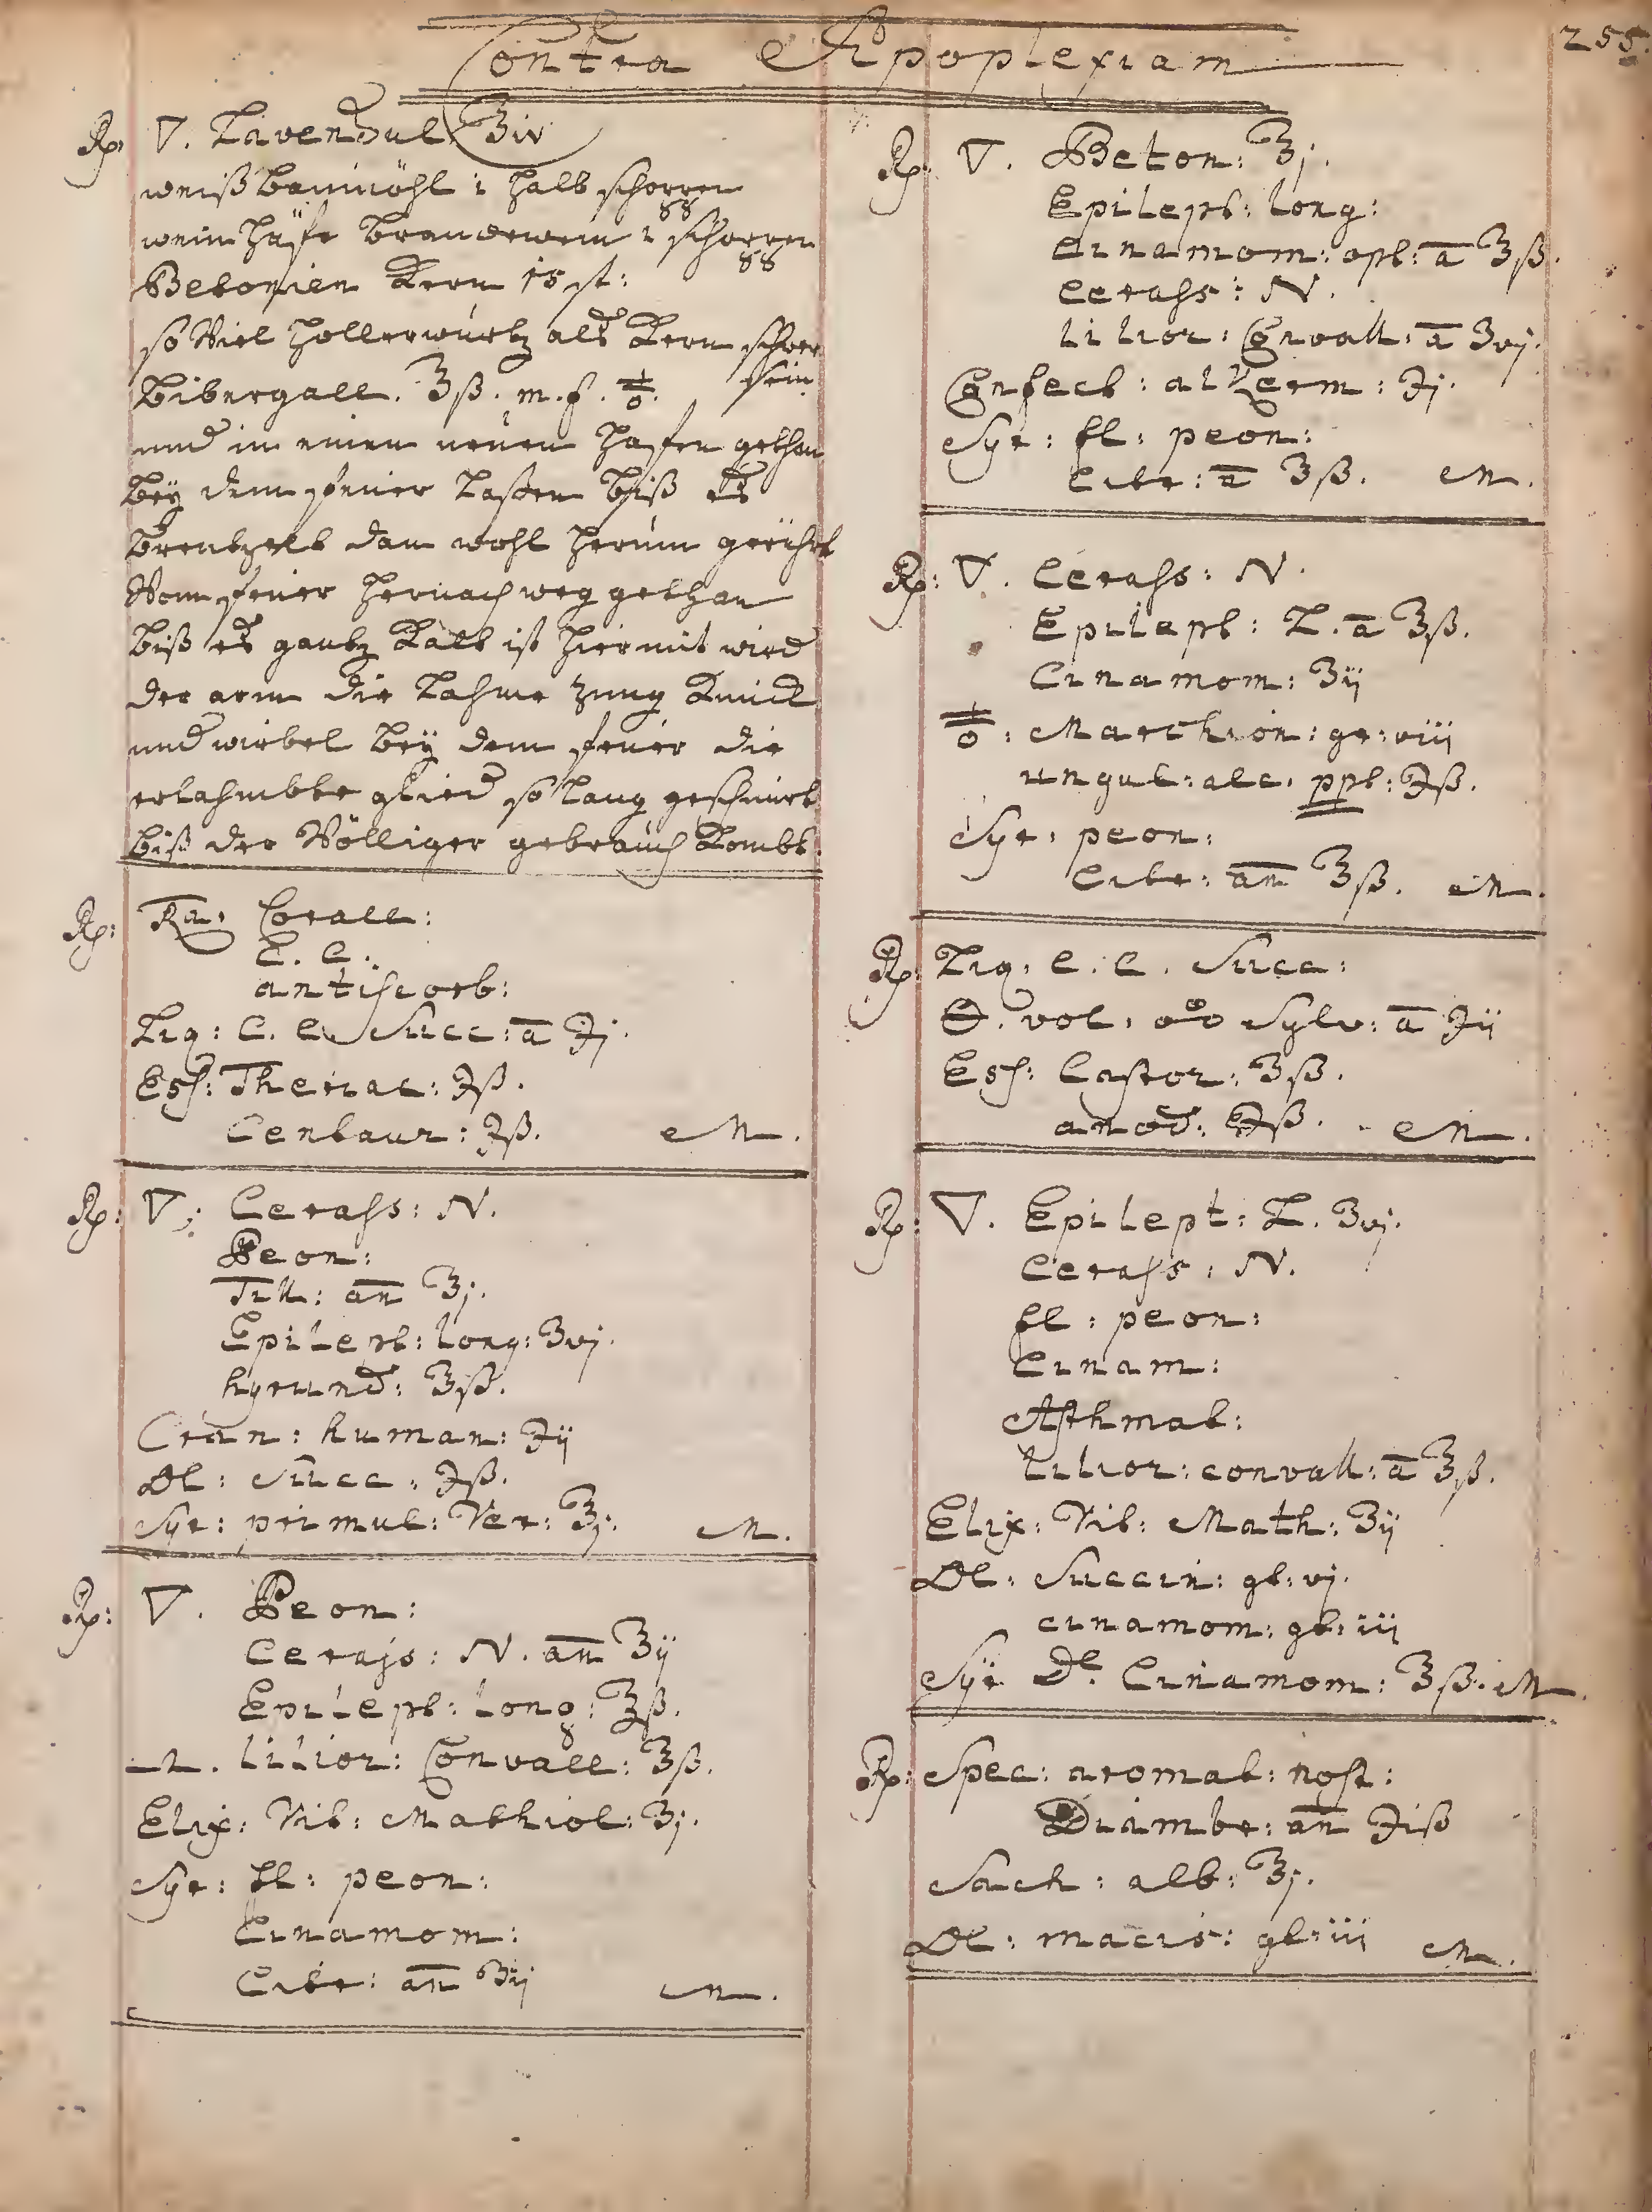 Contra Apoplexiam
255.
Rp. ▽. Lavendul ℥iv
weiß Baumöhl 1 halb schoppen
wein häffe Brandewein 1 schoppen
Betonien Kern 15 st:
so Viel hollerwurtz alß Kern schwer
sein
Bibergall. ℥ß. m. f.
und in einen neuen haffen gethan
Bey dem feuer Laßen Biß Es
Brentzelt dan wohl herum gerührt
Vom feuer hernach weg gethan
Biß es gantz Kalt ist hiermit wird
der arm die Lahme Zung Knick
und wirbel Bey dem feuer die
erlahmbte glied so Lang geschmirt
Biß der Völliger gebrauch Kombt.
Rp: Ra. Corall:
C. C.
antiscorb:
Liq: C. C. Succ: a ʒj.
Ess: Theriac: ʒß.
Centaur: ʒß. M.
Rp: ▽. Cerass: N.
Peon:
Till: an ℥j.
Epilept: long: ℥vj.
hyrund: ℥ß.
Cran: human: ʒij
Ol: Succ. ʒß.
Syr: primul: Ver: ℥j. M.
Rp: ▽. Peon:
Cerass: N. an ℥ij
Epilept: long: ℥ß.
lilior: Convall: ℥ß.
Elix: Vit: Mathiol: ℥j.
Syr: fl: peon:
Cinamom:
Citr: an ℥ij M.
Rp. ▽. Beton: ℥j.
Epilept: long:
Cinamom: opt: a ℥ß.
Cerass: N.
lilior: Convall: a ℥vj.
Confect: alkerm: ʒj.
Syr: fl: peon:
Citr: a ℥ß. M.
Rp: ▽. Cerass: N.
Epilept: L. a ℥ß.
Cinamom: ℥ij
Marchion: gr: viij
ungul: alc. ppt: ʒß.
Syr: peon:
Citr: an ℥ß. M.
Rp: Liq. C. C. Succ:
vol. Sylv: a ʒij
Ess: Castor: ℥ß.
anod: ʒß. M.
Rp: ▽. Epilept: L. ℥vj.
Cerass: N.
fl: peon:
Cinam:
Asthmat:
Lilior: convall: a ℥ß.
Elix: Vit: Math: ℥ij
Ol: Succin: gt: vj.
cinamom: gt: iij
Syr Cinamom: ℥ß. M
Rp: Spec: aromat: rost:
Diambr: an ʒiß
Sach: alb: ℥j.
Ol: macis: gt: iij M.